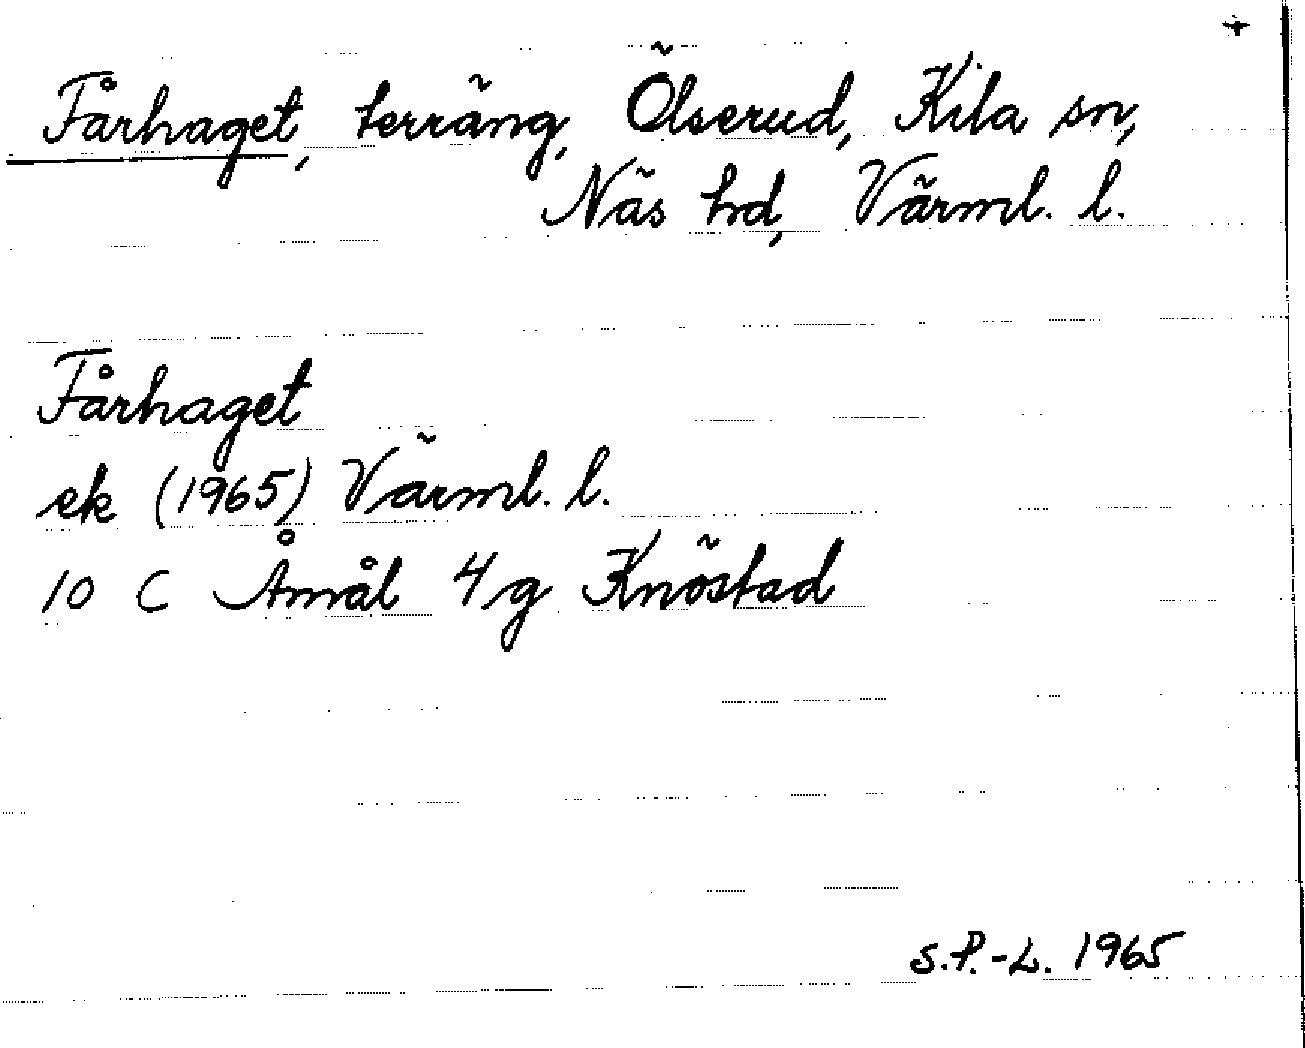 +
Fårhaget, terräng, Ölserud, Kila sn,
Näs hd, Värml. l.
Fårhaget
ek (1965) Värml. l.
10 C Åmål 4g Knöstad
S.P.-L. 1965